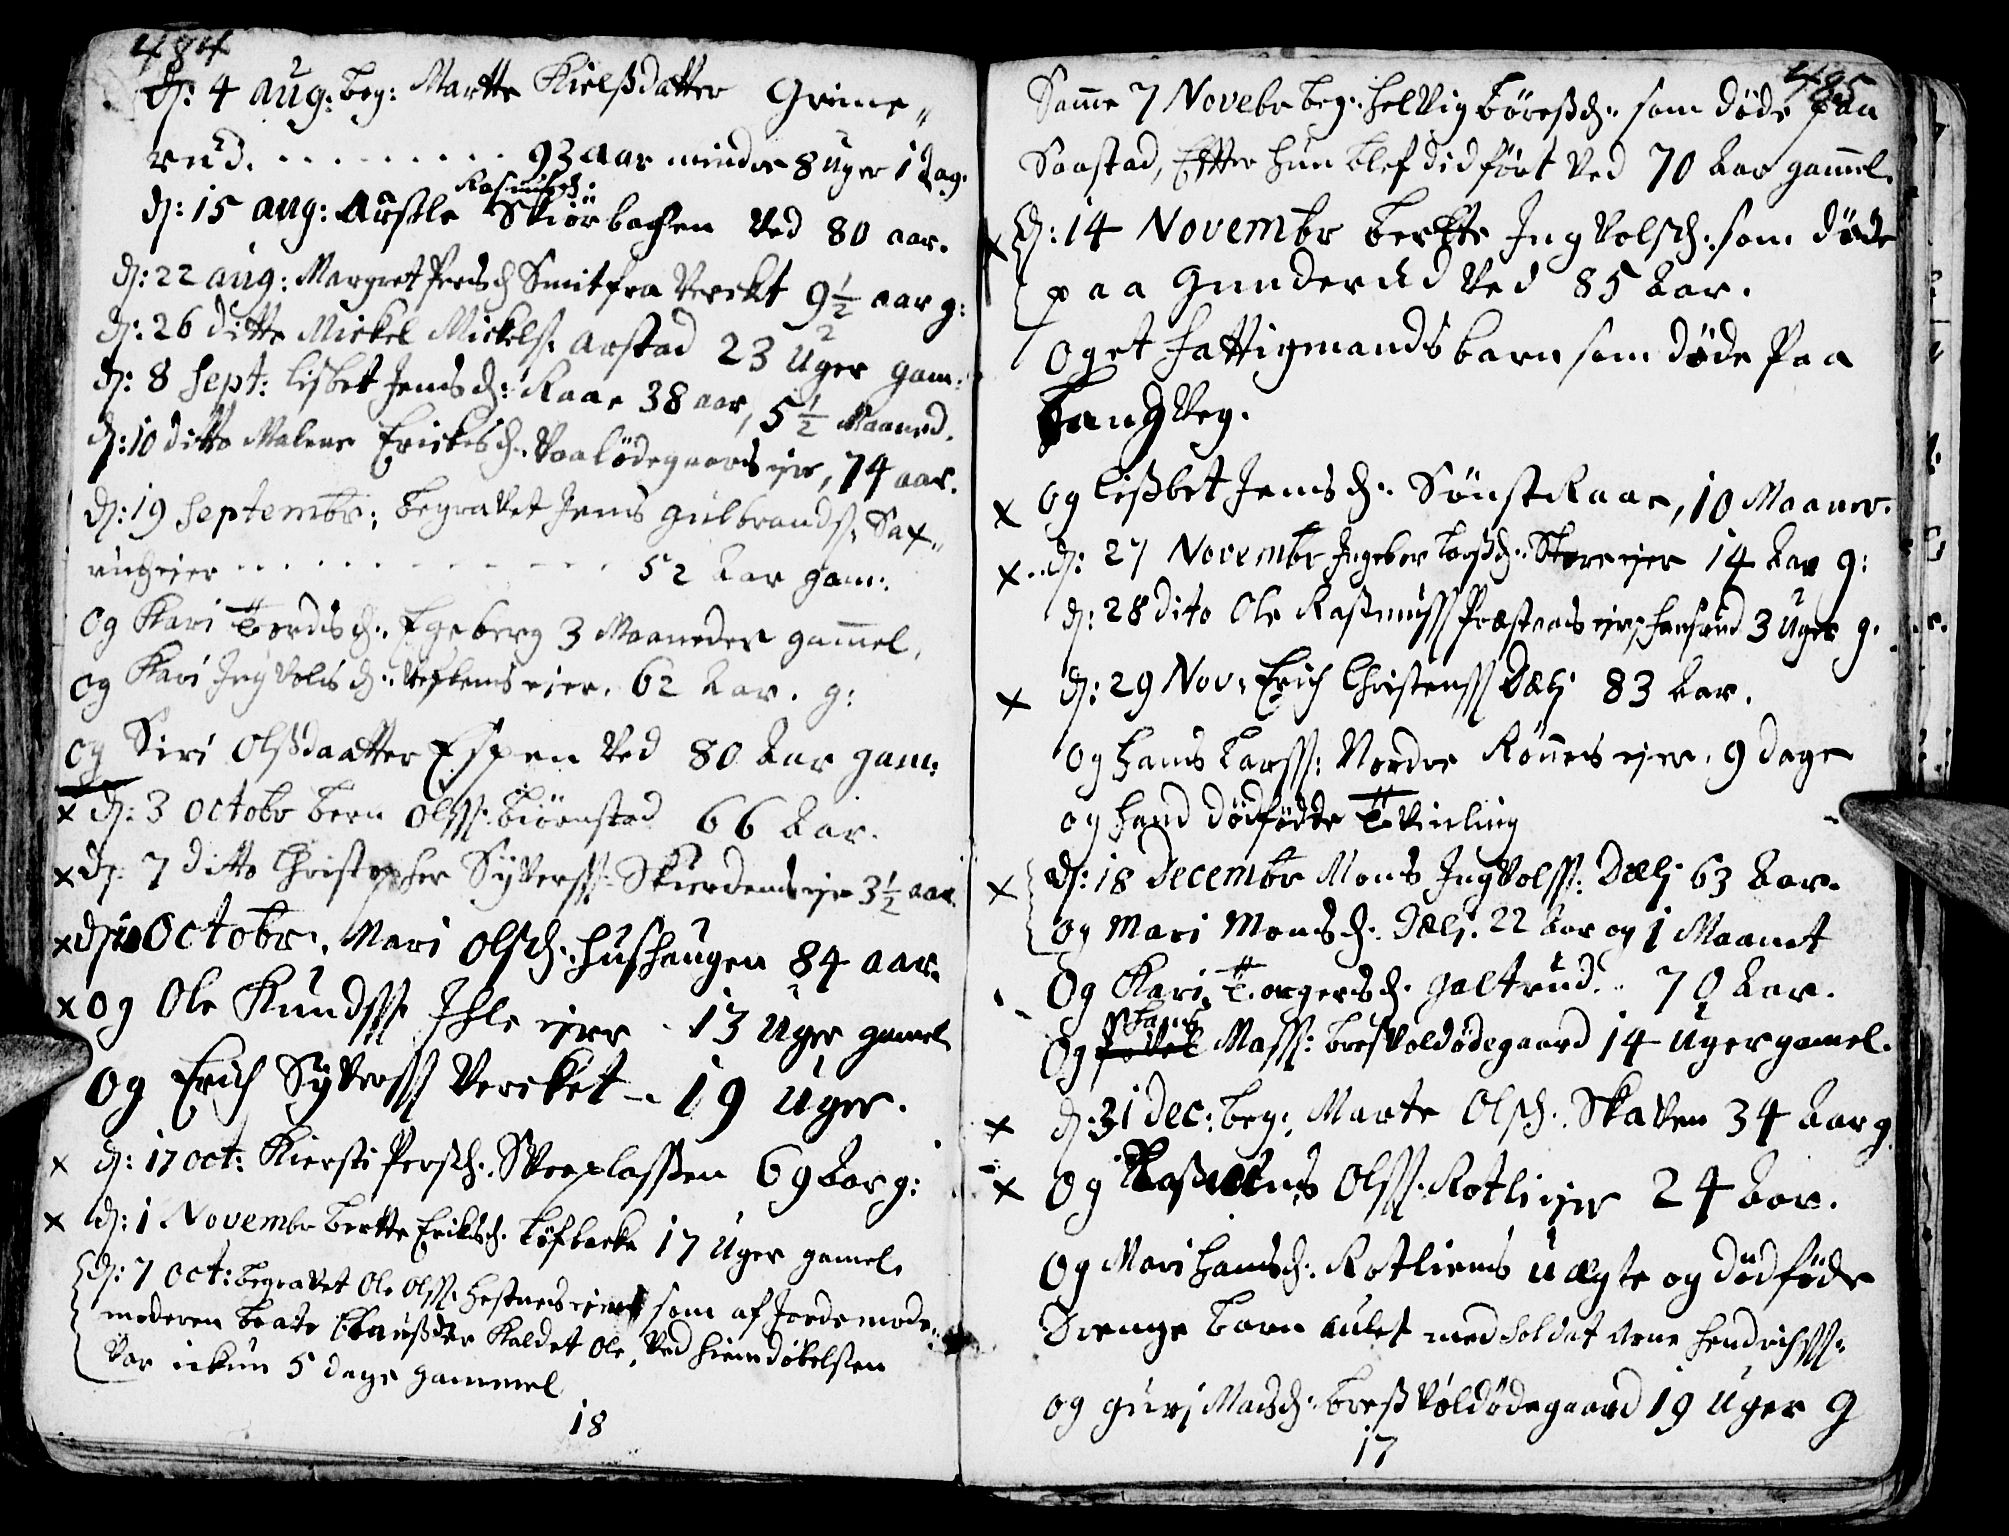 484
d: 4 aug: beg: Martte Kielsdatter Grime„
rud. . . . . . . . . . 93 aar mindre 8 Uger 1 dag.
Rasmusd:
d: 15 aug: Aasle Skiörbachen Ved 80 aar.
d: 22 aug: Margret Persd Smit fra Verckt 9½ aar g:
d: 26 ditto Mickel Mickels: Arstad 23 Uger gam:
d: 8 Sept: Lisbet Jensd: Raae 38 aar, 5½ Maaned.
d: 10 ditto Malene Erickesd: Vaalödegaards eje, 74 aar.
d: 19 Septembr: begravet Jens Gulbrands: Sax„
rudeier . . . . . . . . . . . . 52 Aar gam:
Og Kari Tordsd: Egeberg 3 Maaneder gam̄el.
og Kari Ingvolds d: eier. 62 Aar. g:
og Siri Olsdaatter Espen Ved 80 Aar gam:
x d: 3 octobr bern Olss: Biörnstad 66 Aar.
x d: 7 ditto Christopher Syverss: Skierdens eje 3½ aar
x d: 10 Octobr. Mari Olsd: Hushaugen 84 aar.
x og Ole Knudss: Ihle eier - 13 Uger gamel
Og Erich Syverss Vercket - 19 Uger.
x d: 17 oct: Kiersti Persd: Sveplassen 69 Aar g:
x d: 1 Novembr bertte Eriksd: Löfbacke 17 Uger gamel.
d: 7 Oct: begravet Ole Olss: Hestnes som af Jordemode„
moderen Beate Kaldet Ole, Ved hiemdöbelsen
Var ickun 5 dage gammel
18
485
Samme 7 Novebr beg: Helvig Böresd: som döde paa
Saastad, Efter hun blef did fört Ved 70 Aar gam̄el.
x d: 14 Novembr bertte Ingvolsd: som döde
paa Gunderud Ved 85 Aar.
Og et fattigmands barn som döde Paa
Tangveg.
x og Lisbet Jensd: Sönst Raae, 10 Maaner.
x d: 27 Novembr Ingebor Larsd: Store eier 14 Aar g:
d: 28 dito Ole Rasmuss Præstens eje 3 Uger g.
x d: 29 Nov: Erich Christenss Dælj 83 Aar.
Og Hans Larss: Nordre Rönnes ejer. 9 dage
og hand dödfödte Tvilling
x d: 18 Decembr Mons Ingvolss: Dælj 63 Aar.
Og Mari Monsd: Dælj. 22 Aar og 1 Maanet
Og Kari Torgersd: Galtrud. 70 Aar.
Lars
Og Povel Mass: Bresvoldödegaard 14 Uger gamel.
x d: 31 Dec: beg: Marte Olsd: Skaven 34 Aar g.
x Og Rasmus Olss: Rotli ejer 24 Aar.
Og Mari Hansd: Rotliens uægte og dödföde
Drenge barn aulet med Soldat Arne Hendrichss:
og Guri Madsd: Bresvoldödegaard 19 Uger g
17